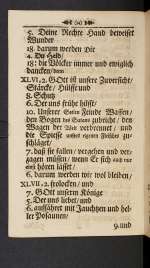 5. Deine Rechte Hand beweiset
Wunder
18. darum werden die
4. Du Held/
18. die Völcker immer und ewiglich
dancken/
XLVI, 2. GOtt ist unsere Zuversicht/
Stärcke/ Hülffe und
8. Schutz
6. Der uns frühe hülfft/
10. Unserer Feinde Waffen/
den Bogen zubricht/ den
Wagen verbrennet/ und
die Spiesse zu-
schläget/
7. daß sie fallen/ verzagen und ver-
gagen müssen/ wenn Er sich
hören läßt/
6. darum werden wir wol bleiben/
XLVII, 2. frolocken/ und
7. GOtt unserm Könige
5. Der uns liebet/ und
6. auffähret mit Jauchzen und hel-
ler Posaunen/
9. und